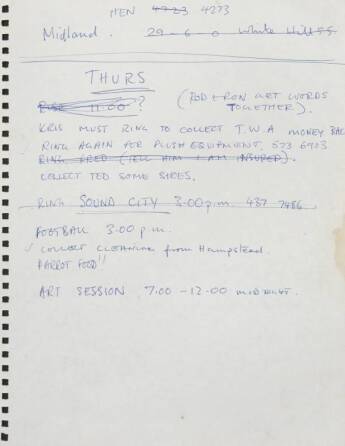 HEN 4723 4273
Midland. 29-6-0 White Hill SS
THURS
RISE 11.00?
(ROD & RON ART WORDS TOGETHER).
KRIS MUST RING TO COLLECT T.W.A MONEY BAC
RING AGAIN FOR PLUSH EQUIPMENT. 573 6903
RING FRED (TELL HIM I AM INSURED).
COLLECT TED SOME SIRES.
RING SOUND CITY 3.00 p.m. 437 7486
FOOTBALL 3.00 p.m.
✓ COLLECT CLEANING from Hampstead.
PARROT FOOD!!
ART SESSION 7.00 – 12.00 MIDNIGHT.